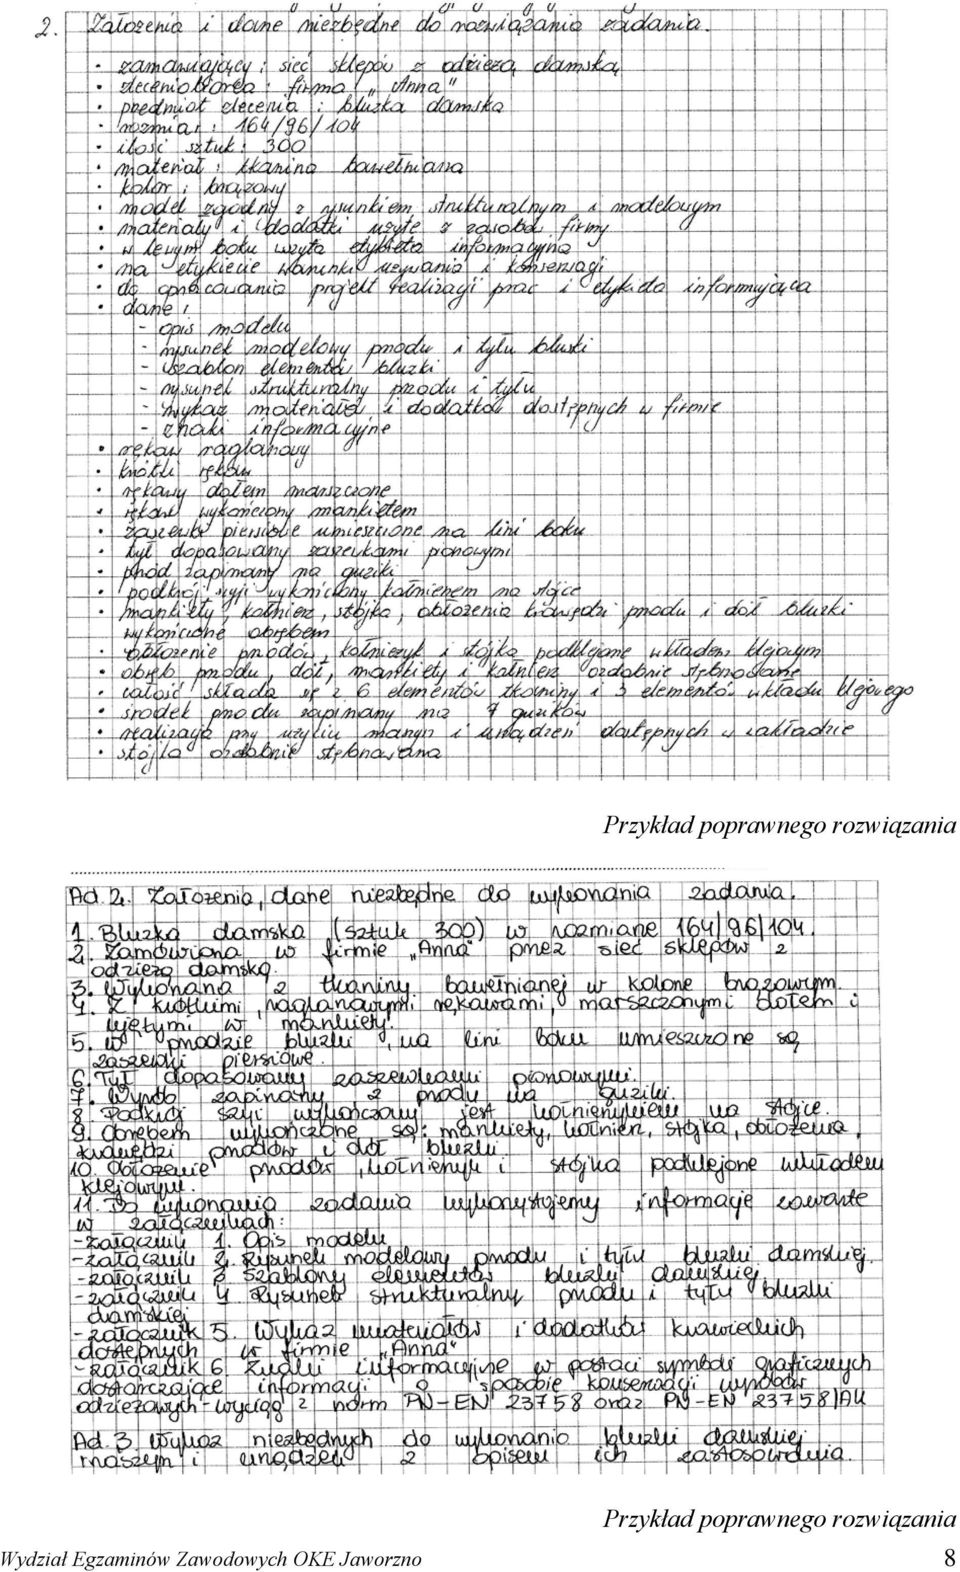 2. Założenia i dane niezbędne do rozwiązania zadania.
• zamawiający: sieć sklepów z odzieżą damską
• zleceniobiorca: firma „Anna"
• przedmiot zlecenia: bluzka damska
• rozmiar: 164/96/104
• ilość sztuk: 300
• materiał: tkanina bawełniana
• kolor: brązowy
• model zgodny z rysunkiem strukturalnym i modelowym
• materiały i dodatki użyte z zasobów firmy
• w lewym boku wszyta etykieta informacyjna
• na etykiecie warunki używania i konserwacji
• do opracowania projekt realizacji prac i etykieta informująca
• dane:
- opis modelu
- rysunek modelowy przodu i tyłu bluzki
- szablon elementów bluzki
- rysunek strukturalny przodu i tyłu
- wykaz materiałów i dodatków dostępnych w firmie
- znaki informacyjne
• rękaw raglanowy
• krótki rękaw
• rękawy dołem marszczone
• rękaw wykończony mankietem
• zaszewki piersiowe umieszczone na lini boku
• tył dopasowany zaszewkami pionowymi
• przód zapinany na guziki
• podkrój szyji wykończony kołnierzem na stójce
• mankiety, kołnierz, stójka, obłożenia krawędzi przodu i dół bluzki
wykończone obrębem
• obłożenie przodów, kołnierzyk i stójka podklejone wkładem klejowym
• obręb przodu, dół, mankiety i kołnierz ozdobnie stębnowane
• całość składa się z 6 elementów tkaniny i 3 elementów wkładu klejowego
• środek przodu zapinany na 7 guzików
• realizacja przy użyciu maszyn i urządzeń dostępnych w zakładzie
• stójka ozdobnie stębnowana
Przykład poprawnego rozwiązania
Ad. 2. Założenia, dane niezbędne do wykonania zadania.
1. Bluzka damska (sztuk 300) w rozmiarze 164/96/104.
2. Zamówiona w firmie „Anna" przez sieć sklepów z
odzieżą damską.
3. Wykonana z tkaniny bawełnianej w kolorze brązowym.
4. Z krótkimi, raglanowymi rękawami, marszczonymi dołem i
ujętymi w mankiety.
5. W przodzie bluzki, na lini boku umieszczone są
zaszewki piersiowe.
6. Tył dopasowany zaszewkami pionowymi.
7. Wyrób zapinany z przodu na guziki.
8. Podkrój szyi wykończony jest kołnierzykiem na stójce.
9. Obrębem wykończone są: mankiety, kołnierz, stójka, obłożenia,
krawędzi przodów i dół bluzki.
10. Obłożenie przodów, kołnierzyk i stójka podklejone wkładem
klejowym.
11. Do wykonania zadania wykorzystujemy informacje zawarte
w załącznikach:
-załącznik 1. Opis modelu
-załącznik 2. Rysunek modelowy przodu i tyłu bluzki damskiej.
-załącznik 3 Szablony elementów bluzki damskiej.
-załącznik 4. Rysunek strukturalny przodu i tyłu bluzki
damskiej
-załącznik 5. Wykaz materiałów i dodatków krawieckich
dostępnych w firmie „Anna"
-załącznik 6. Znaki informacyjne w postaci symboli graficznych
dostarczające informacji o sposobie konserwacji wyrobów
odzieżowych - wyciąg z norm PN-EN 23758 oraz PN-EN 23758/AK
Ad. 3. Wykaz niezbędnych do wykonania bluzki damskiej
maszyn i urządzeń z opisem ich zastosowania.
Przykład poprawnego rozwiązania
Wydział Egzaminów Zawodowych OKE Jaworzno 8